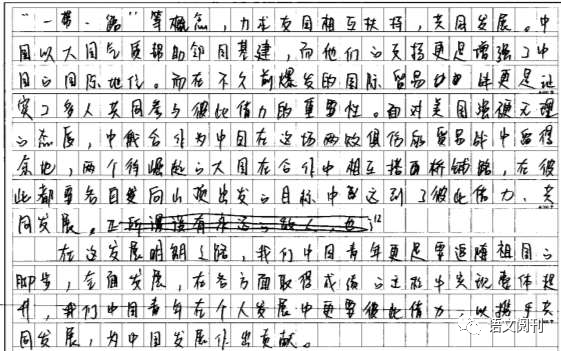 “一带一路”等概念，力求各国相互扶持，共同发展。中
国以大国气质帮助邻国基建，而他们的支持更是增强了中
国的国际地位。而在不久前爆发的国际贸易战更是证
实了多人共同参与彼此借力的重要性。面对美国强硬无理
的态度，中俄合作为中国在这场两败俱伤的贸易战中留得
余地，两个待崛起的大国在合作中相互搭桥铺路，在彼
此都要各自发向山顶出发的目标中达到了彼此借力、共
同发展。正所谓没有永远的敌人，也
在这发展明朗之路，我们中国青年更是要追随祖国的
脚步，全面发展，在各方面取得成绩的过程中实现整体提
升，我们中国青年在个人发展中更要彼此借力，以携手共
同发展，为中国发展作出贡献。
语文阅刊